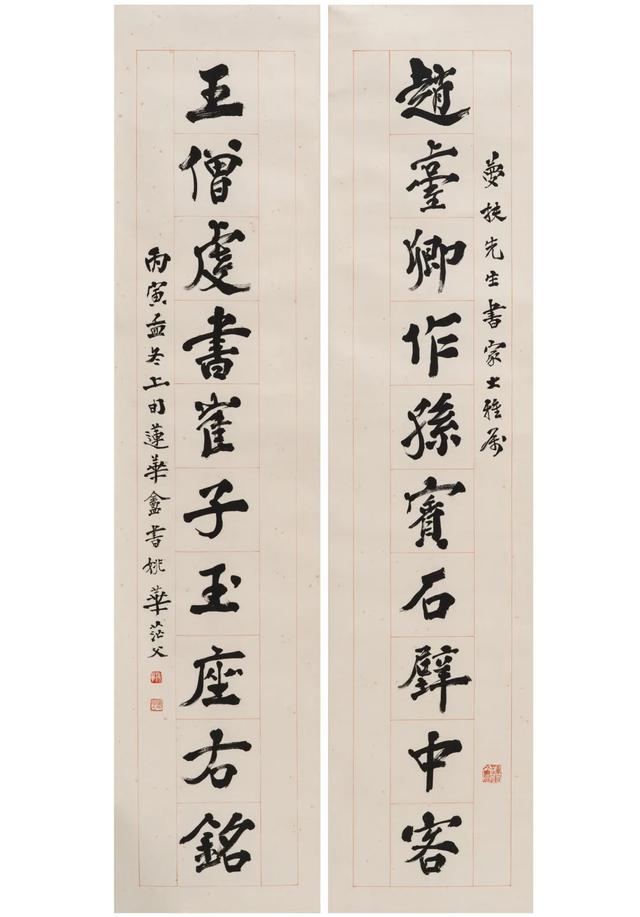 夢扶先生書家大雅屬
趙臺卿作孫賓石壁中客
王僧虔書崔子玉座右銘
丙寅孟冬上旬蓮華盦書姚華茫父